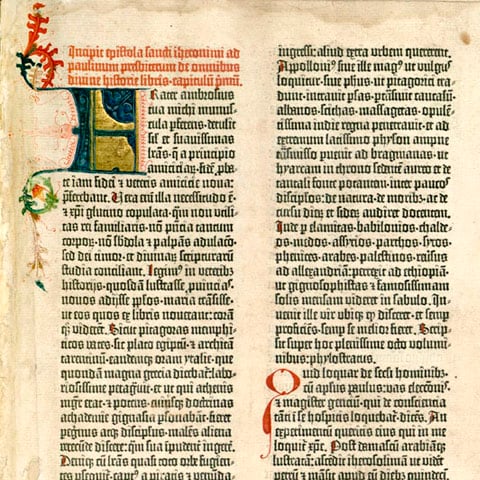 Incipit epistola sancti iheronimi ad
paulinum presbiterum de omnibus
divine historie libris· capitulū pmū.
Frater ambrosius
tua michi munus-
cula pferens· detulit
sil et suauissimas
lrās· q̄ a principio
amiciciaꝝ· fidē pba-
te iam fidei ⁊ veteris amicicie noua:
pferebant. Uera eni illa necessitudo ē·
⁊ xpī glutino copulata· qm non utili-
tas rei familiaris· nō pncia tantum
corporꝝ· nō sbdola ⁊ palpās adulacō·
sed dei timor· et diuinaꝝ scripturarū
studia conciliant. Legim⁹ in veterib⁹
historijs· quosdā lustrasse puincias·
nouos adijsse pplos· maria trāsisse·
ut eos quos ex libris nouerant: corā
qꝫ viderēt. Sicut pitagoras memphi-
ticos vates· sic plato egiptū· ⁊ architā
tarentinū· eandemqꝫ oram ytalie· que
quondā magna grecia dicebat: labo-
riosissime peragrauit· et ut qui athenis
mgr erat· ⁊ potens· cuiusqꝫ doctrinas
achademie gignasia psonabāt· fieret
pegrinus atqꝫ discipulus· malēs aliena
verecūde discere: qm sua īpudent ingere.
Deniqꝫ cū lrās quasi toto orbe fugien-
tes psequit· capt⁹ a piratis ⁊ venūda-
ingressi: aliud extra urbem quererent.
Apolloni⁹ siue ille mag⁹ ut vulgus
loquitur· siue phus· ut pitagorici tra-
dunt· intrauit psas· ptrāsiuit caucasū·
albanos· scithas· massagetas· opulē-
tissima indie regna penetrauit: et ad
extremum latissimo physon amne
trāsmisso puenit ad bragmanas· ut
hyarcam in throno sedētē aureo et de
tantali fonte potantem· inter paucos
discipulos· de natura· de moribꝫ ac de
cursu dieꝝ et sideꝝ audiret docentem.
Inde p elamitas· babilonios· chalde-
os· medos· assyrios· parthos· syros·
phenices· arabes· palestinos· reūsus
ad allexandriā: perrexit ad ethiopiā·
ut gignosophistas ⁊ famosissimam
solis mensam videret in sabulo. In-
uenit ille vir ubiqꝫ qđ disceret: et semp
proficiēs· semp se melior fieret. Scrip-
sit super hoc plenissime octo volumi-
nibus: phylostratus.
Quid loquar de secli hominibꝫ·
cū apłus paulus: vas eleccōis·
⁊ magister genciū· qui de consciencia
tāti ī se hospitis loquebat· dicēs. An
experimentū queritis eius qui in me
loquit xpc. Post damascū arabiāqꝫ
lustratā: ascēdit iherosolimā ut videt
petrū ⁊ māsit apud eū diebꝫ quindeci.